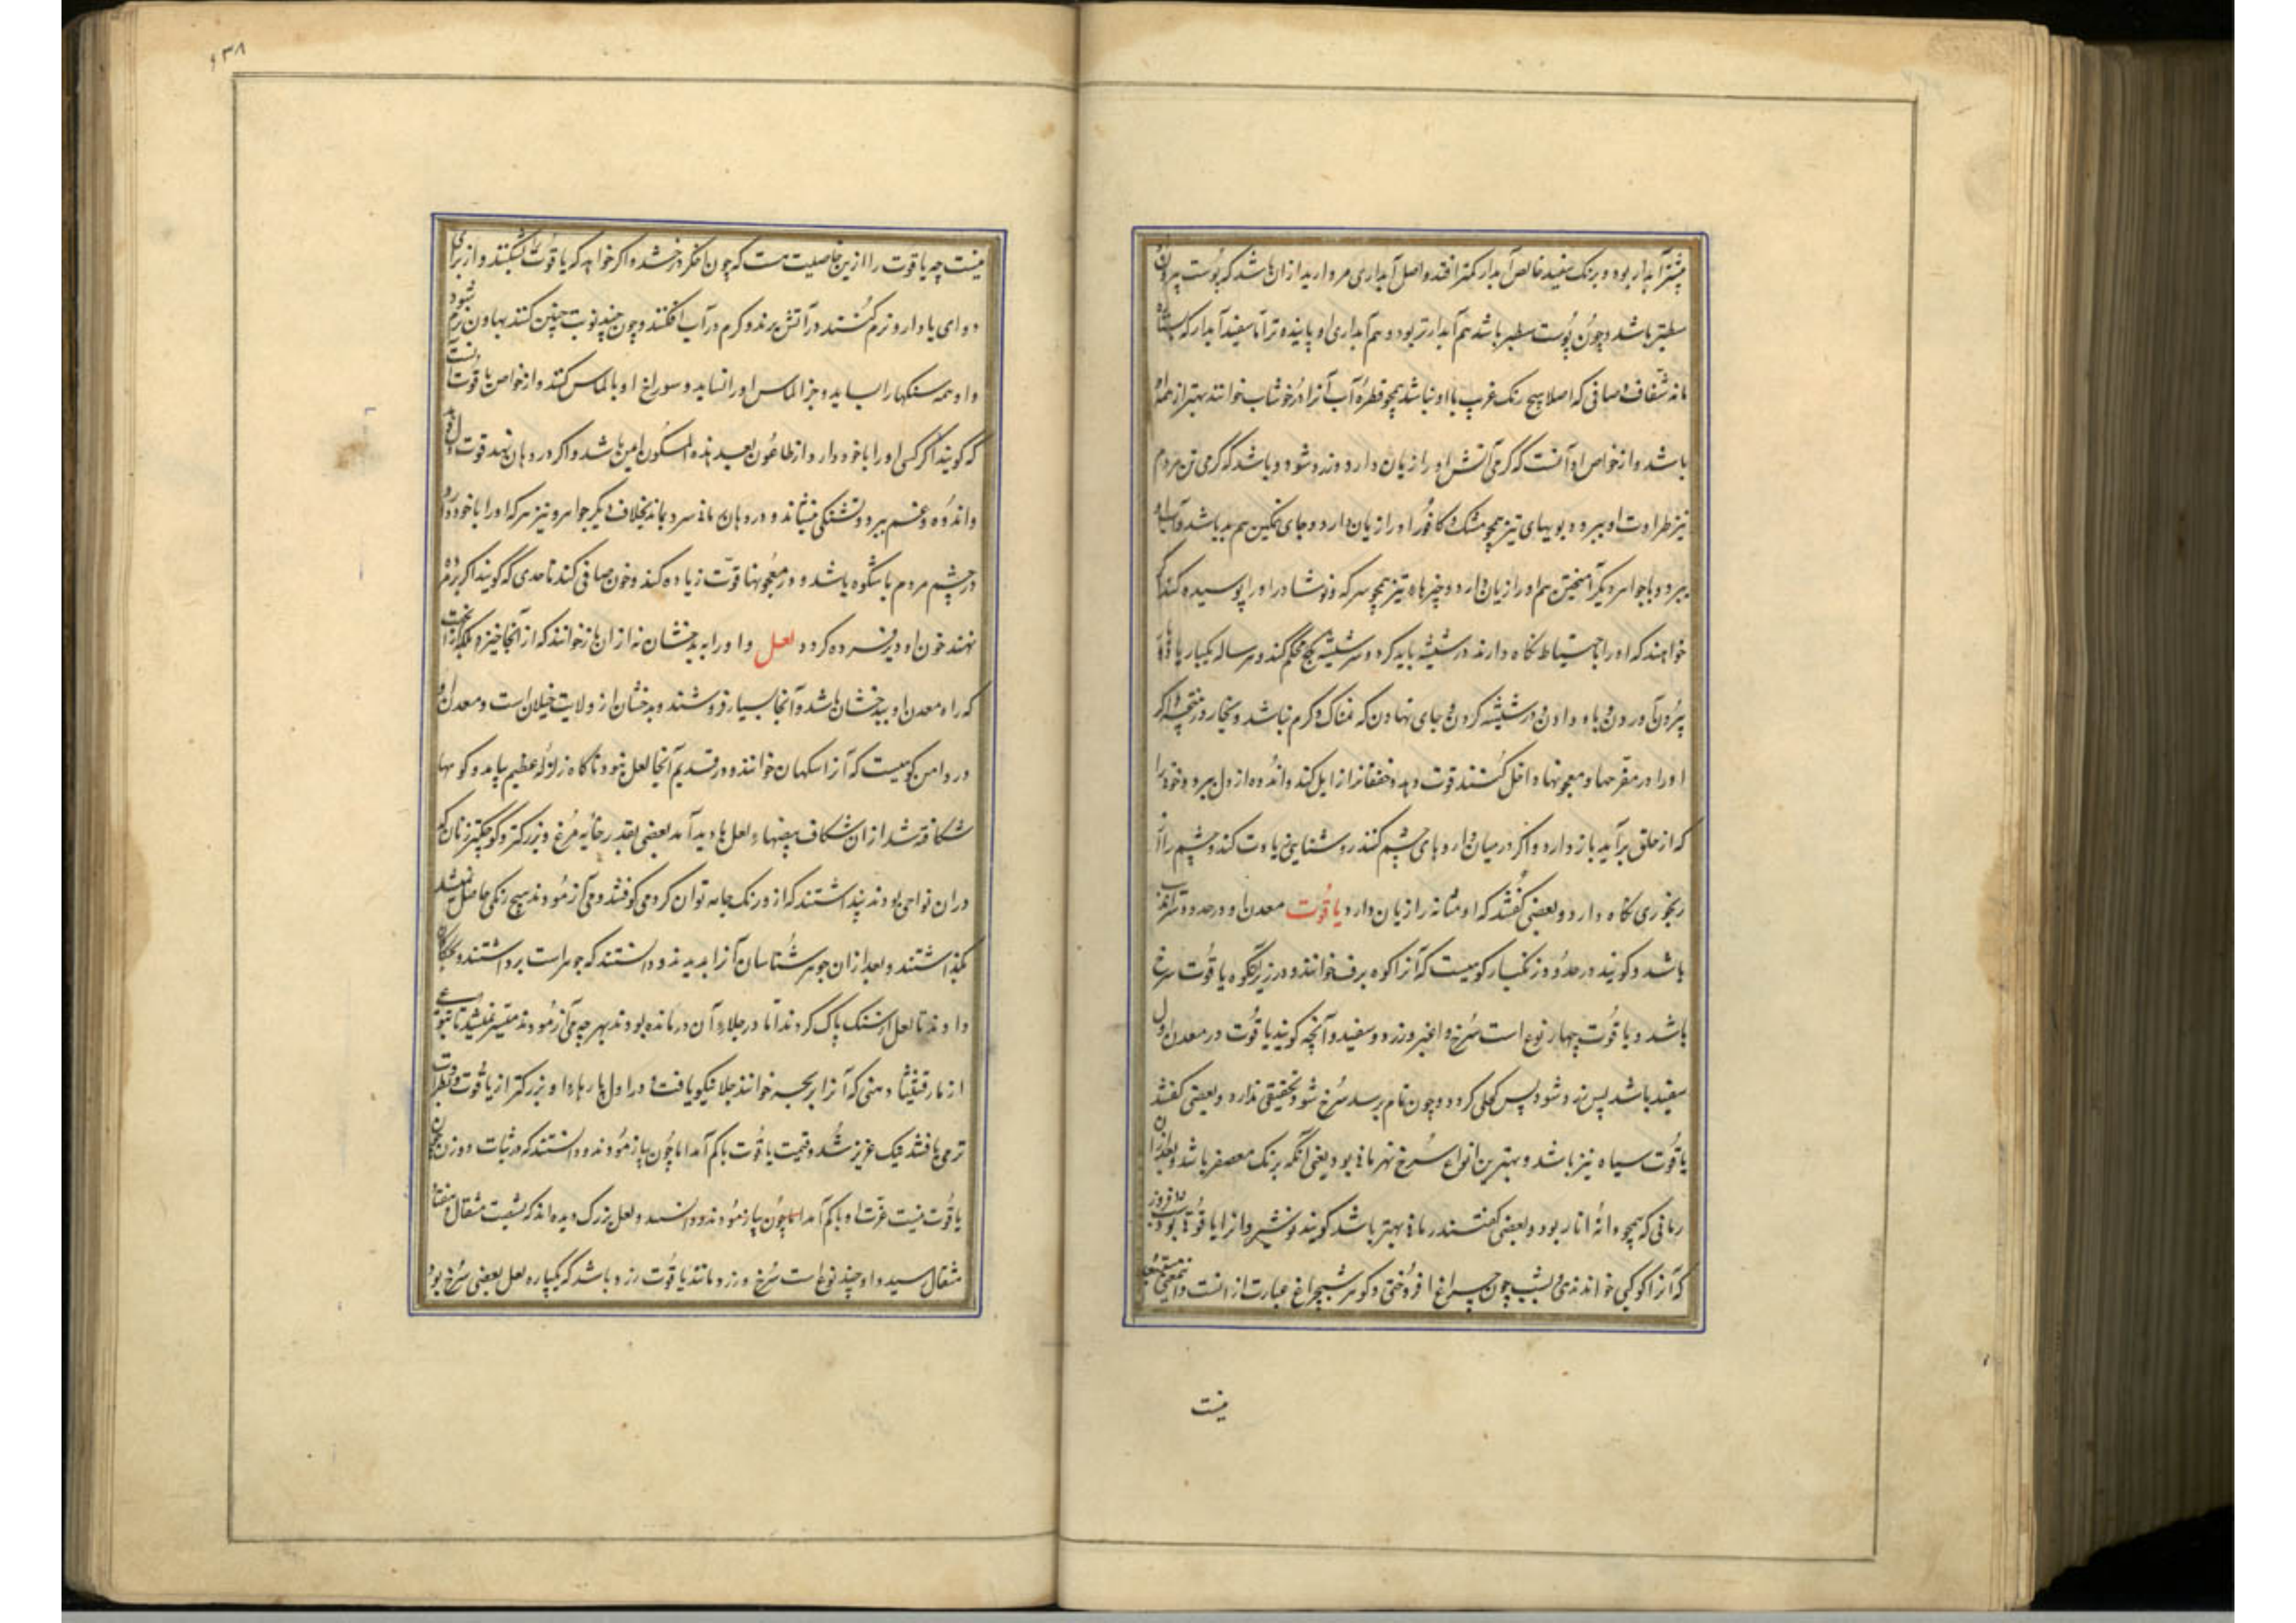 بیشتر آبدار بود و برنک سفید خالص آبدار کمتر افتد و اصل آبداری مروارید از ان باشد که پوست بیرون
سطبر باشد و چون پوست سطبر باشد هم آبدارتر بود و هم آبداری او پاینده تر اما سفید آبدار که
مانند شفاف صافی که اصلا هیچ رنک غریب با او نباشد همچو قطره آب آنرا در خوشاب خوانند بهتر از همه
باشد و از خواص او آنست که کرمی آتش او را زیان دارد و زرد شود و باشد که کرمی تن مردم
نیز طراوت او ببرد و بویهای تیز همچو مشک و کافور او را زیان دارد و جای نمکین هم بد باشد و آب او
ببرد و با جواهر دیکر آمیختن هم او را زیان دارد و چیزهاء تیز همچو سرکه و نوشادر او را پوسیده کند اکر
خواهند که او را باحتیاط نکاه دارند در شیشه باید کرد و سر شیشه بکج محکم کند و هر ساله یکبار
بیرون آوردن و باد دادن و در شیشه کردن و جای نهادن که نمناک و کرم نباشد و بخار در و اکر
او را در مفرحها و معجونها داخل کنند قوت دهد و خفقانرا زایل کند و اندوه از دل ببرد و خون را
که از حلق برآید باز دارد و اکر در میان داروهای چشم کنند روشنایی زیادت کند و چشم را از
رنجوری نکاه دارد و بعضی کفتند که او مثانه را زیان دارد یاقوت معدن او در حدود سراندیب
باشد و کویند در حدود زنکبار کوهیست که آنرا کوه برف خوانند و در زیر آن کوه یاقوت سرخ
باشد و یاقوت چهار نوع است سرخ و اغبر و زرد و سفید و آنچه کویند یاقوت در معدن اول
سفید باشد پس زرد شود پس کحلی کردد و چون تمام برسد سرخ شود تحقیقی ندارد و بعضی کفتند
یاقوت سیاه نیز باشد و بهترین انواع سرخ بهرمانی بود یعنی آنکه برنک معصفر باشد و بعد از ان
رمانی که همچو دانه انار بود و بعضی کفتند رمانی بهتر باشد کویند نوشیروانرا یاقوتی بود
که آنرا کوکبی خواندندی بشب چون چراغ افروختی و کوهر شبچراغ عبارت از انست و این معنی
نیست
۶۳۸
نیست چه یاقوت را از این خاصیت هست که چون اخکر درخشد و اکر خواهد که یاقوت بشکنند و از برای
دوای یا دارو نرم کنند در آتش برند و کرم در آب افکنند و چون چند نوبت چنین کنند بهاون نرم شود
و او همه سنکها را بساید و جز الماس او را نساید و سوراخ او بالماس کنند و از خواص یاقوت آنست
که کویند اکر کسی او را با خود دارد از طاعون امین باشد و اکر در دهان نهد قوت دل دهد
و اندوه و غم ببرد و تشنکی بنشاند و در دهان سرد بماند بخلاف دیکر جواهر و نیز هر که او را با خود دارد
در چشم مردم باشکوه باشد و در معجونها قوت زیاده کند و خون صافی کند تا حدی که کویند اکر بر مرده
نهند خون او دیر فسرده کردد لعل و او را به بدخشان نه از ان باز خوانند که از آنجا خیزد بلکه از آنجهت
که راه معدن او ببدخشان باشد و آنجا بسیار فروشند و بدخشان از ولایت ختلان است و معدن او
در دامن کوهیست که آنرا سکهان خوانند و در قدیم آنجا لعل نبود ناکاه زلزله عظیم بیامد و کوهها
شکافته شد از ان شکاف بیضهاء لعل ها پدید آمد بعضی بقدر خایه مرغ و بزرکتر و کوچکتر زنان که
در ان نواحی بودند پنداشتند که از او رنک جامه توان کرد می کوفتند و می آزمودند هیچ رنکی حاصل نمیشد
بکذاشتند و بعد از ان جوهرشناسان آنرا بدیدند و دانستند که جوهر است برداشتند و بحکاکان
دادند تا لعل از سنک پاک کردند اما در جلاء آن درمانده بودند بهرچه می آزمودند میسر نمیشد تا بنوعی
از مارقشیشا ذهبی که آنرا خوانند جلا نیکو یافت و در اول پارها او بزرکتر از یاقوت و بطراوت
تر می یافتند نیک عزیز شد و قیمت یاقوت باکم آمد اما چون بیازمودند و دانستند که در ثبات و وزن همچون
یاقوت نیست عزت او باکم آمد اما چون بیازمودند و دانستند و لعل بزرک دیده اند که بشصت مثقال هفتاد
مثقال رسید و او چند نوع است سرخ و زرد مانند یاقوت زرد و باشد که یکپاره لعل بعضی سرخ بود